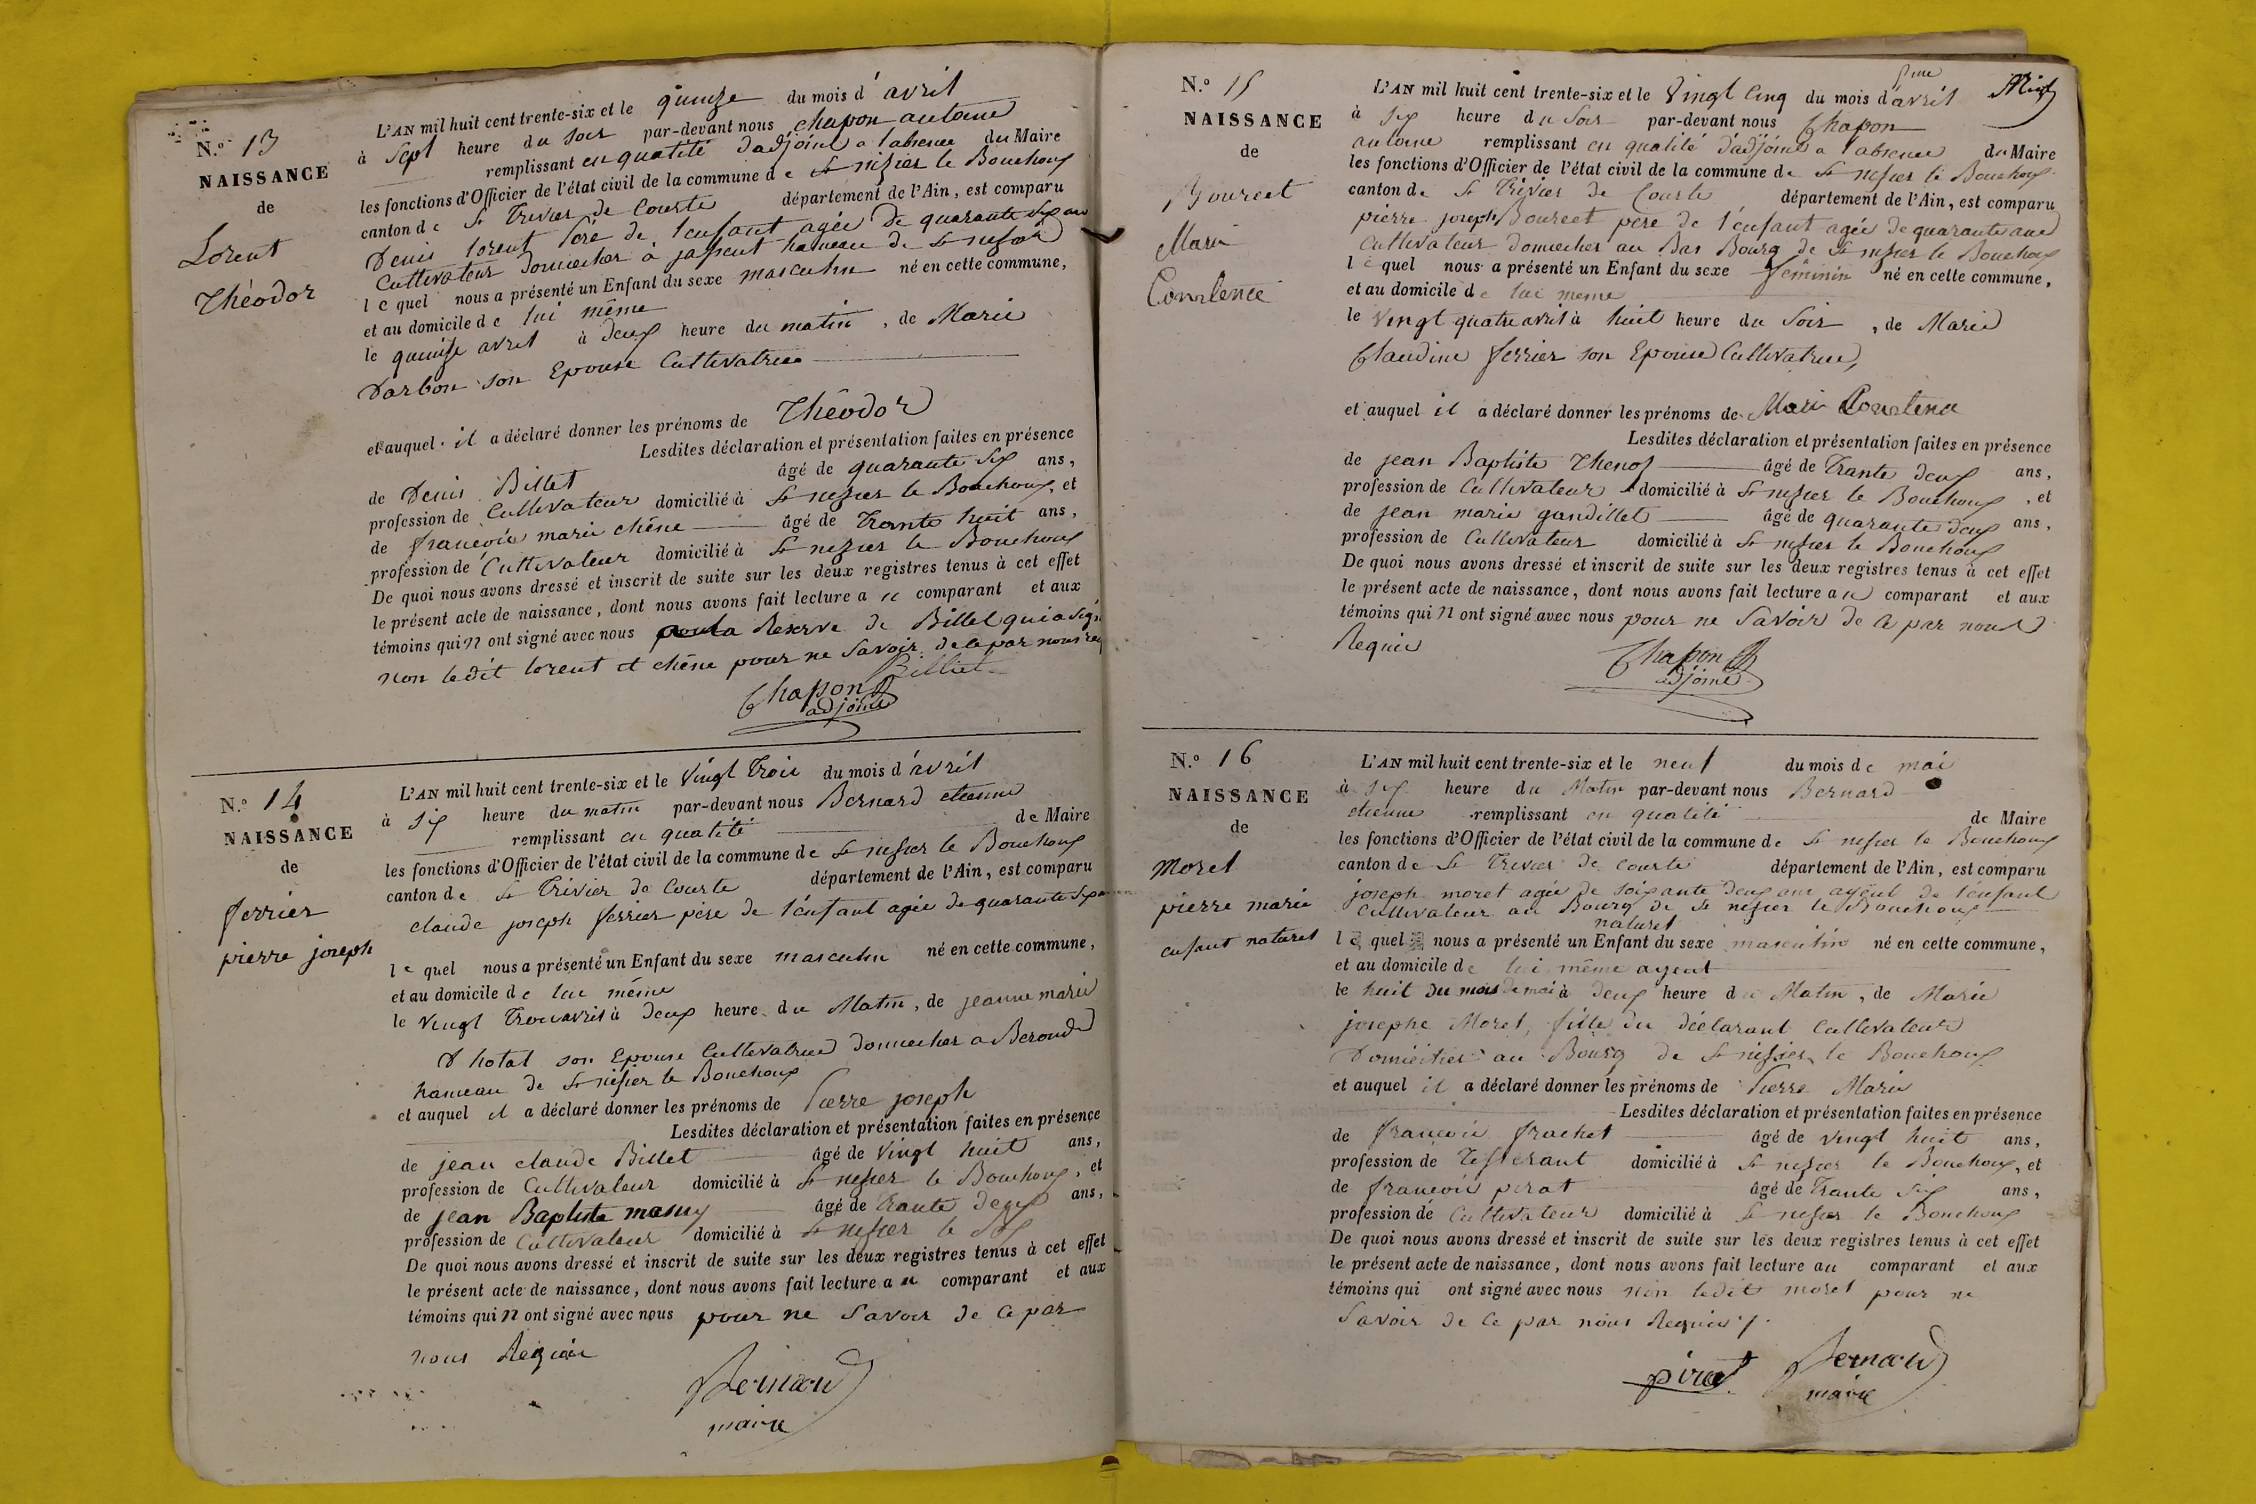 N.o 13
NAISSANCE
de
Lorent
Théodor
L'AN mil huit cent trente-six et le quinze du mois d'avril
à Sept heure du soir par-devant nous chapon antoine
remplissant en qualité d'adjoint a l'absence du Maire
les fonctions d'Officier de l'état civil de la commune de St nizier le Bouchoux
canton de St Trivier de Courte département de l'Ain, est comparu
Denis lorent Père de l'enfant agée de quarante six an
Cultivateur domicilier à hameau de St nizier
le quel nous a présenté un Enfant du sexe masculin né en cette commune,
et au domicile de lui même
le quinze avril à deux heure du matin, de Marie
Darbon son Epouse Cultivatrice
et auquel il a déclaré donner les prénoms de Théodor
Lesdites déclaration et présentation faites en présence
de Denis Billet âgé de quarante six ans,
profession de Cultivateur domicilié à St nizier le Bouchoux, et
de françois marie chêne âgé de Trante huit ans,
profession de Cultivateur domicilié à St nizier le Bouchoux
De quoi nous avons dressé et inscrit de suite sur les deux registres tenus à cet effet
le présent acte de naissance, dont nous avons fait lecture au comparant et aux
témoins qui n ont signé avec nous Reserve de Billet qui a signé
non ledit lorent et chêne pour ne Savoir de ce par nous req
Billiet
Chapon
adjoint
N.o 14
NAISSANCE
de
ferrier
pierre joseph
L'AN mil huit cent trente-six et le Vingt Trois du mois d'avril
à six heure du matin par-devant nous Bernard etienne
remplissant en qualité de Maire
les fonctions d'Officier de l'état civil de la commune de St nizier le Bouchoux
canton de St Trivier de Courte département de l'Ain, est comparu
claude joseph ferrier père de l'enfant agée de quarante
le quel nous a présenté un Enfant du sexe masculin né en cette commune,
et au domicile de lui même
le Vingt Trois avril à deux heure du Matin, de jeanne marie
Thotal son Epouse Cultivatrice domicilier a Beroud
hameau de St nizier le Bouchoux
et auquel il a déclaré donner les prénoms de Pierre joseph
Lesdites déclaration et présentation faites en présence
de jean claude Billet âgé de Vingt huit ans,
profession de Cultivateur domicilié à St nizier le Bouchoux, et
de jean Baptiste âgé de trante deux ans,
profession de Cultivateur domicilié à St nizier le
De quoi nous avons dressé et inscrit de suite sur les deux registres tenus à cet effet
le présent acte de naissance, dont nous avons fait lecture au comparant et aux
témoins qui n ont signé avec nous pour ne Savoir de ce par
nous Requis
Bernard
maire
N.o 15
NAISSANCE
de
Bourcet
Marie
L'AN mil huit cent trente-six et le Vingt Cinq du mois d'avril
à six heure du Soir par-devant nous Chapon
antoine remplissant en qualité d'adjoint a l'absence du Maire
les fonctions d'Officier de l'état civil de la commune de St nizier le Bouchoux
canton de St Trivier de Courte département de l'Ain, est comparu
pierre joseph Bourcet père de l'enfant agée de quarante ans
Cultivateur domicilier au Bas Bourg de St nizier le Bouchoux
le quel nous a présenté un Enfant du sexe féminin né en cette commune,
et au domicile de lui meme
le Vingt quatre avril à huit heure du Soir, de Marie
Claudine ferrier son Epouse Cultivatrice,
et auquel il a déclaré donner les prénoms de Marie
Lesdites déclaration et présentation faites en présence
de jean Baptiste Thenoz âgé de Trante deux ans,
profession de Cultivateur domicilié à St nizier le Bouchoux, et
de jean marie gandillet âgé de quarante deux ans,
profession de Cultivateur domicilié à St nizier le Bouchoux
De quoi nous avons dressé et inscrit de suite sur les deux registres tenus à cet effet
le présent acte de naissance, dont nous avons fait lecture au comparant et aux
témoins qui n ont signé avec nous pour ne Savoir de ce par nous
Requis
Chapon
adjoint
N.o 16
NAISSANCE
de
moret
pierre marie
enfant naturel
L'AN mil huit cent trente-six et le neuf du mois de mai
à six heure du Matin par-devant nous Bernard
etienne remplissant en qualité de Maire
les fonctions d'Officier de l'état civil de la commune de St nizier le Bouchoux
canton de St Trivier de Courte département de l'Ain, est comparu
joseph moret agée de soixante deux ans ayeul de l'enfant
Cultivateur au Bourg de St nizier le Bouchoux
naturel
le quel nous a présenté un Enfant du sexe masculin né en cette commune,
et au domicile de lui même
le huit du mois de mai à deux heure du Matin, de Marie
josephe Moret, fille du déclarant Cultivateur
Domicilier au Bourg de St nizier le Bouchoux
et auquel il a déclaré donner les prénoms de Pierre Marie
Lesdites déclaration et présentation faites en présence
de françois frachet âgé de vingt huit ans,
profession de Tisserant domicilié à St nizier le Bouchoux, et
de françois pirat âgé de Trante six ans,
profession de Cultivateur domicilié à St nizier le Bouchoux
De quoi nous avons dressé et inscrit de suite sur les deux registres tenus à cet effet
le présent acte de naissance, dont nous avons fait lecture au comparant et aux
témoins qui ont signé avec nous non ledit moret pour ne
Savoir de ce par nous Requis
pirat
Bernard
maire